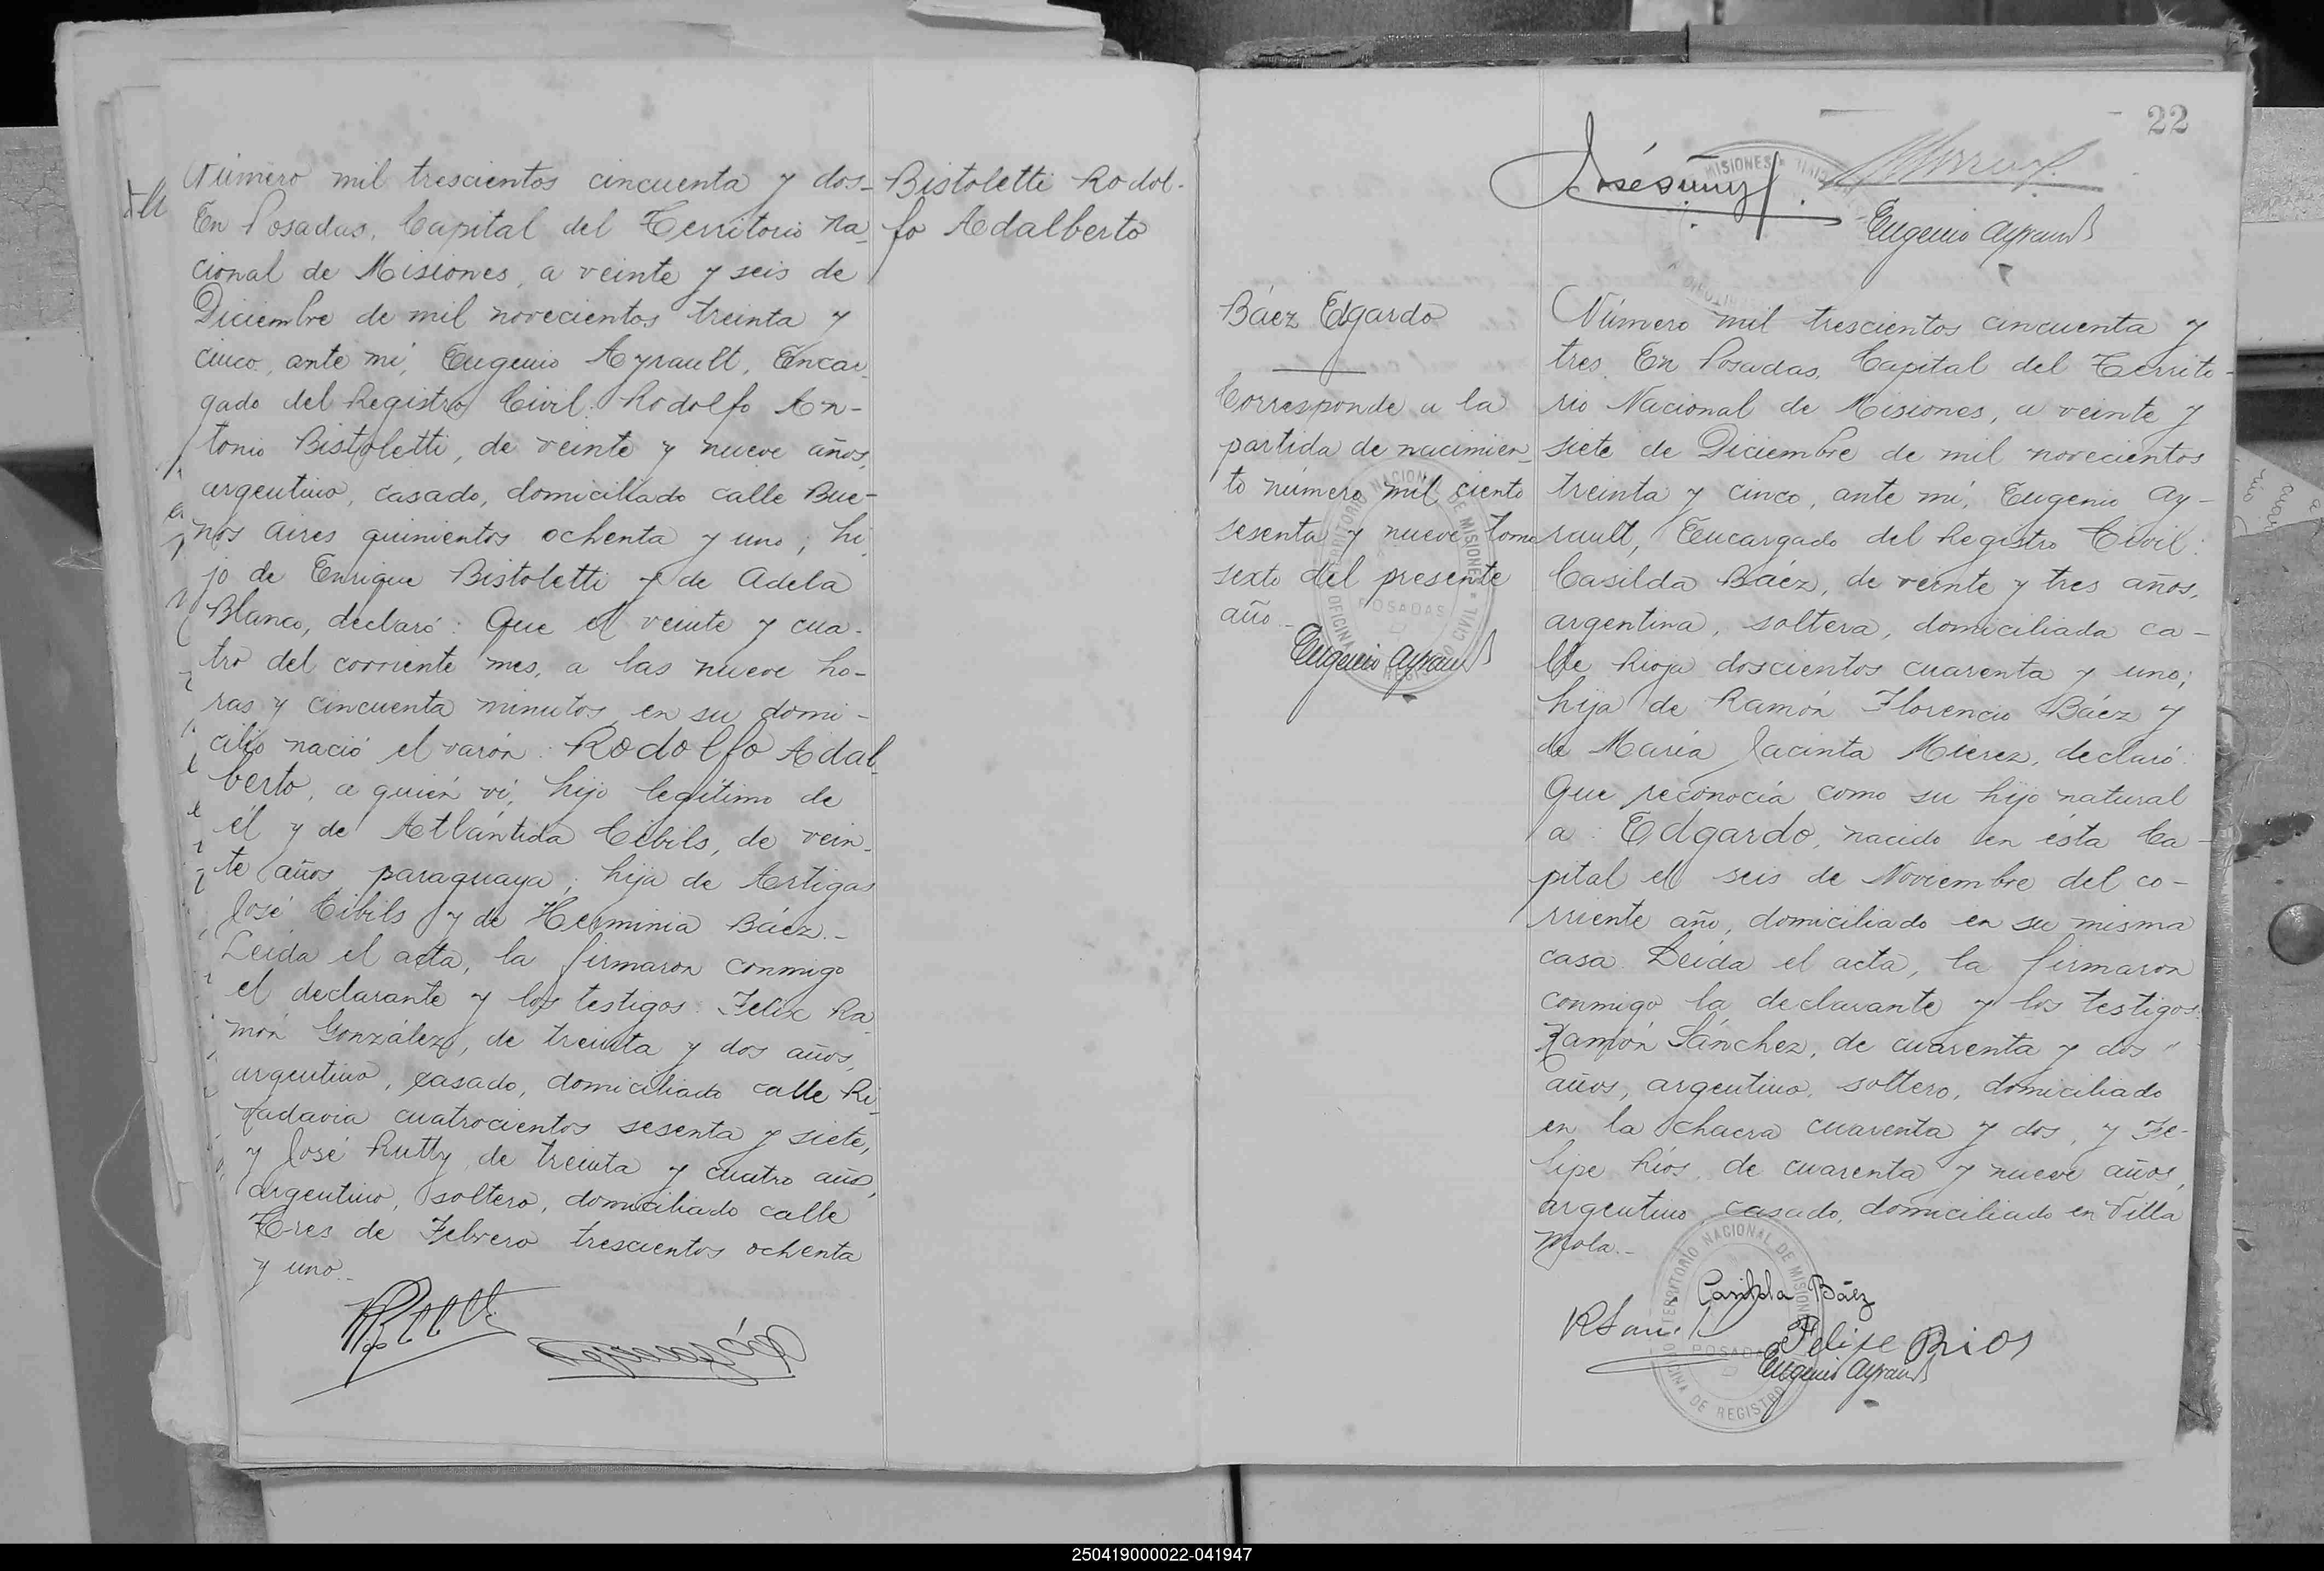 Número mil trescientos cincuenta y dos_
En Posadas, Capital del Territorio Na_
cional de Misiones, a veinte y seis de
Diciembre de mil novecientos treinta y
cinco, ante mí, Eugenio Ayrault, Encar_
gado del Registro Civil: Rodolfo An-
tonio Bistoletti, de veinte y nueve años,
argentino, casado, domiciliado calle Bue-
nos Aires quinientos ochenta y uno; hi_
jo de Enrique Bistoletti y de Adela
Blanco, declaró: Que el veinte y cua-
tro del corriente mes, a las nueve ho-
ras y cincuenta minutos en su domi-
cilio nació el varón: Rodolfo Adal_
berto, a quién ví, hijo legítimo de
él y de Atlántida Cibils, de vein_
te años paraguaya; hija de Artigas
José Cibils y de Herminia Báez.-
Leída el acta, la firmaron conmigo
el declarante y los testigos: Felix Ra_
món González, de treinta y dos años,
argentino, casado, domiciliado calle Ri_
vadavia cuatrocientos sesenta y siete,
y José Rutty, de treinta y cuatro años,
argentino, soltero, domiciliado calle
Tres de Febrero trescientos ochenta
y uno.-
Bistoletti Rodol-
fo Adalberto
22
Eugenio Ayrault
Báez Edgardo
Corresponde a la
partida de nacimien_
to número mil ciento
sesenta y nueve tomo
sexto del presente
año_
Eugenio Ayrault
TERRITORIO NACIONAL DE MISIONES
POSADAS
OFICINA DE REGISTRO CIVIL
Número mil trescientos cincuenta y
tres. En Posadas, Capital del Territo-
rio Nacional de Misiones, a veinte y
siete de Diciembre de mil novecientos
treinta y cinco, ante mí, Eugenio Ay-
rault, Encargado del Registro Civil:
Casilda Báez, de veinte y tres años,
argentina, soltera, domiciliada ca-
lle Rioja doscientos cuarenta y uno;
hija de Ramón Florencio Báez y
de María Jacinta Mierez, declaró:
Que reconocía como su hijo natural
a: Edgardo, nacido en ésta Ca-
pital el seis de Noviembre del co-
rriente año, domiciliado en su misma
casa. Leída el acta, la firmaron
conmigo la declarante y los testigos:
Ramón Sánchez, de cuarenta y dos
años, argentino, soltero, domiciliado
en la chacra cuarenta y dos, y Fe-
lipe Ríos, de cuarenta y nueve años,
argentino, casado, domiciliado en Villa
Mola.-
Casilda Báez
Felipe Rios
Eugenio Ayrault
TERRITORIO NACIONAL DE MISIONES
POSADAS
OFICINA DE REGISTRO
250419000022-041947